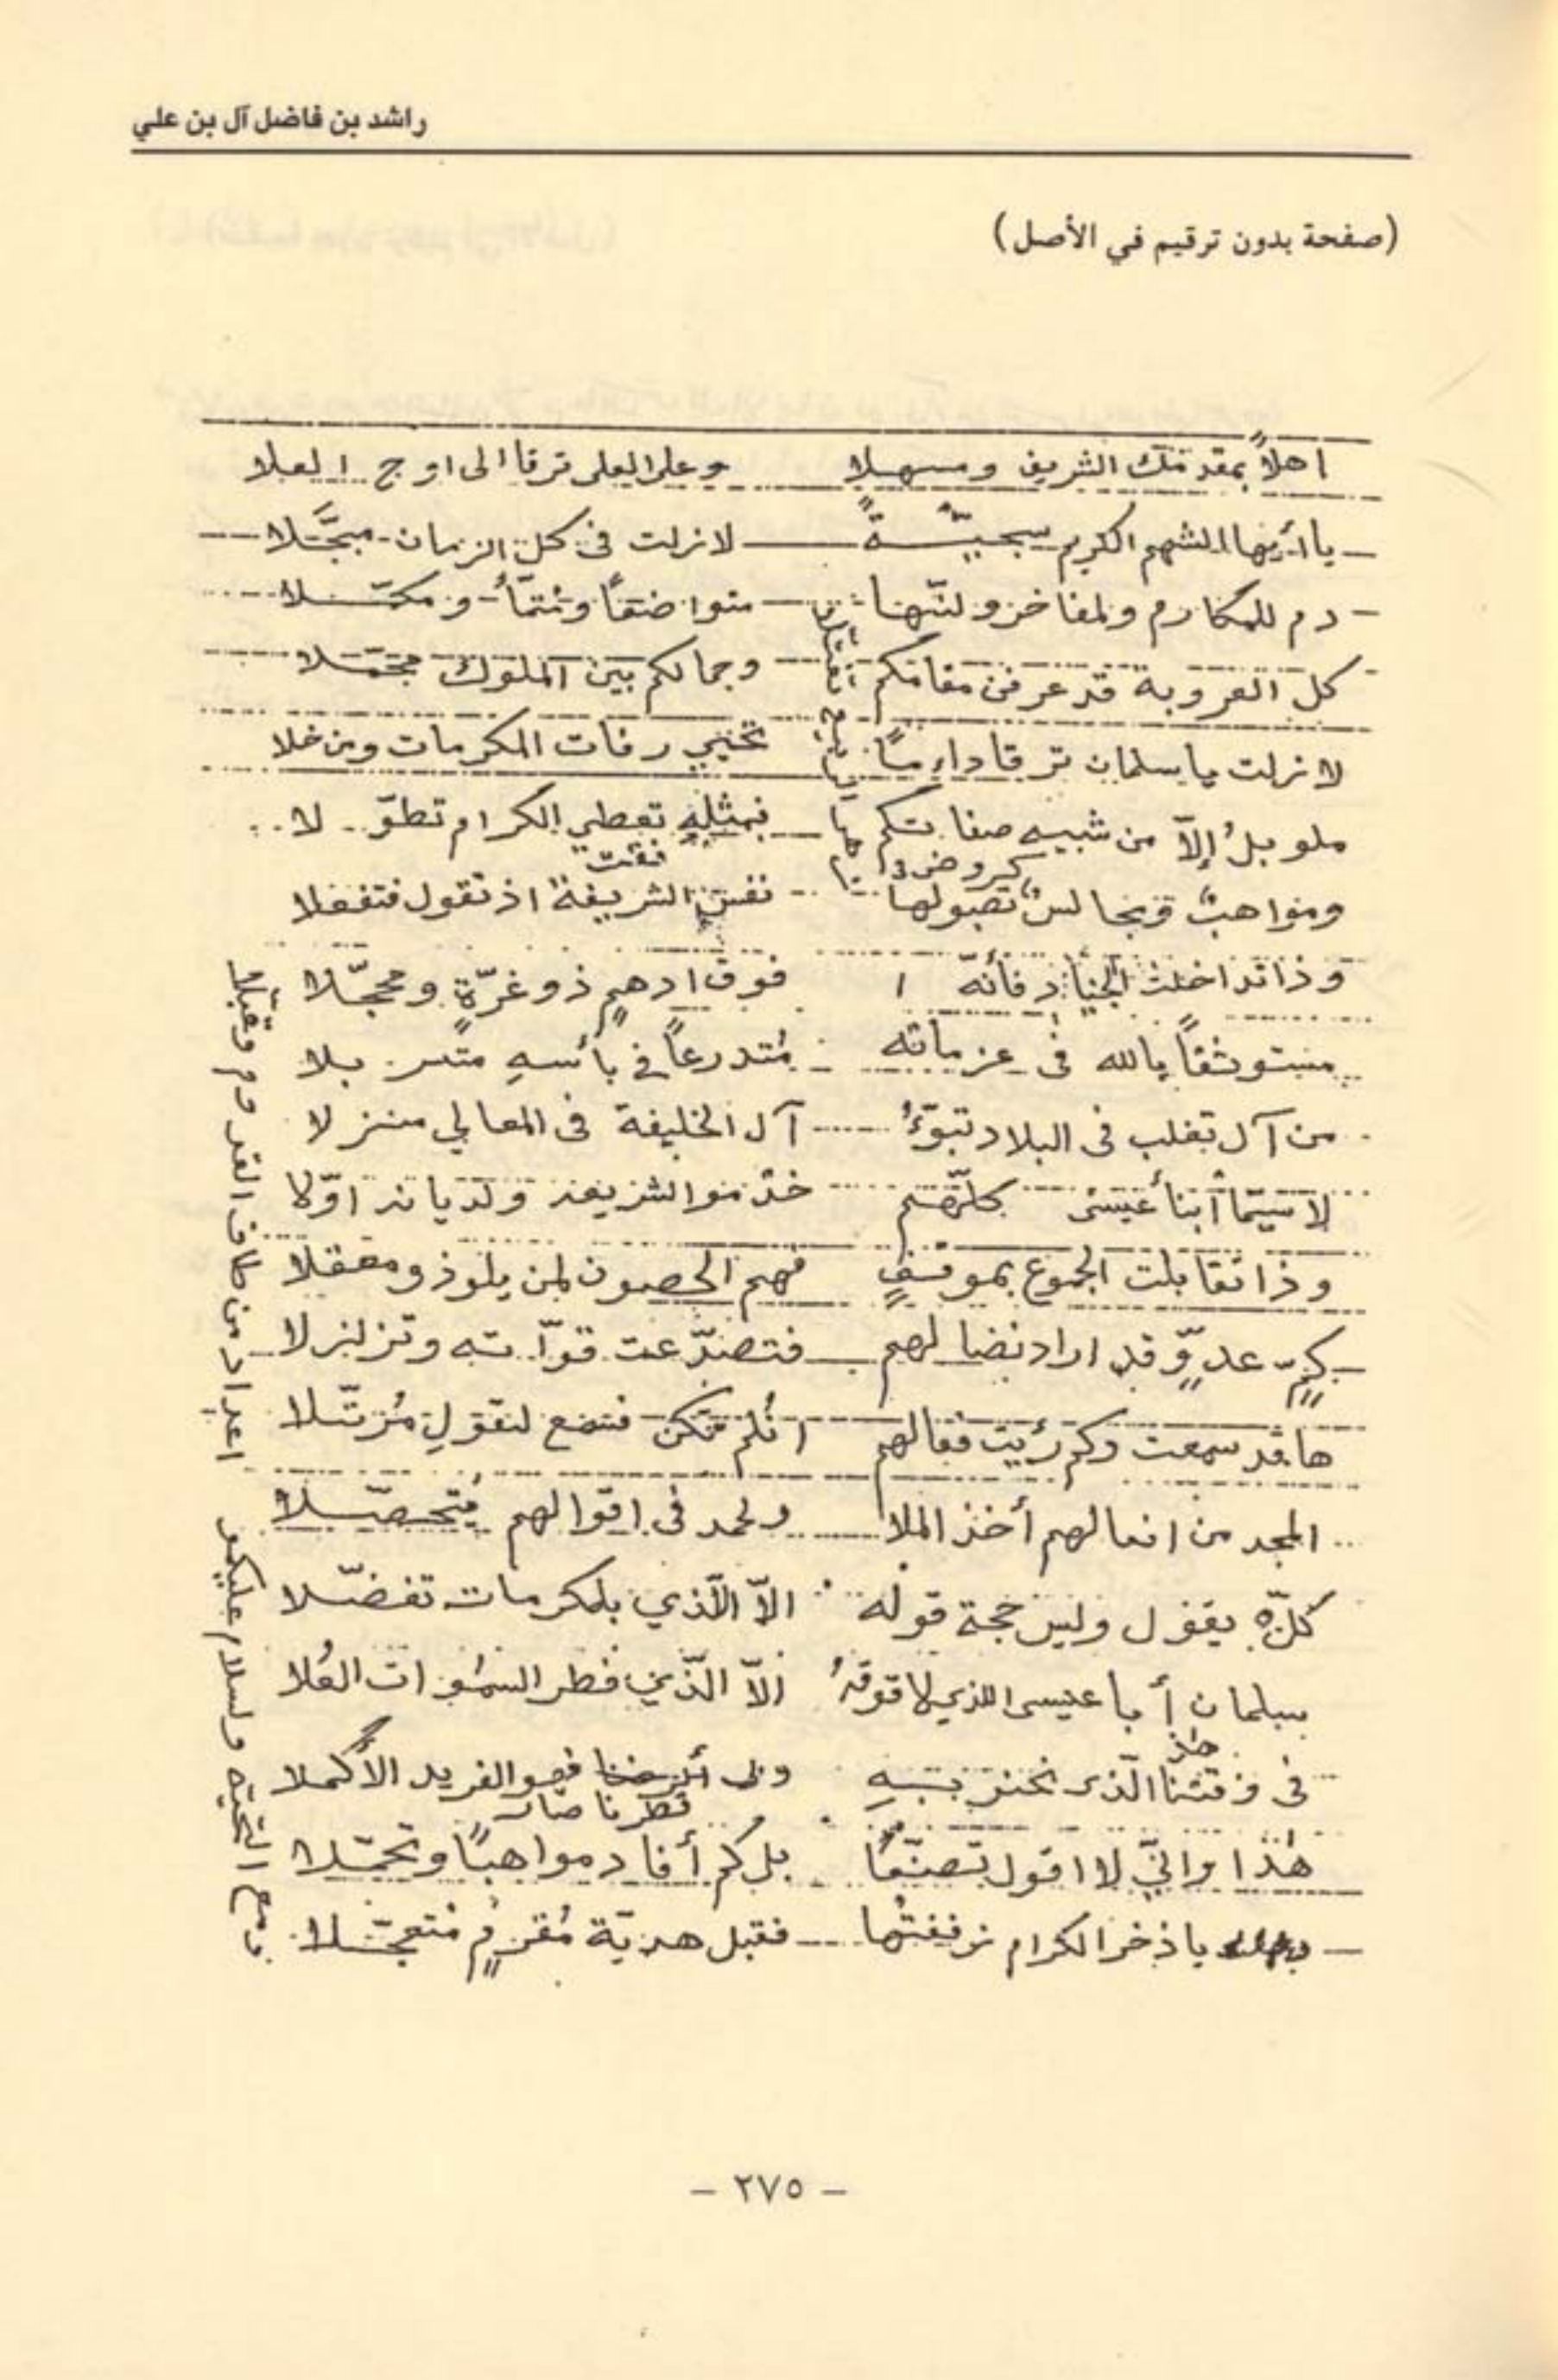 راشد بن فاضل آل بن علي
(صفحة بدون ترقيم في الأصل)
اهلاً بمقدمك الشريف ومسهلا وعلى العلى ترقا الى اوج العلا
يا أيها الشهم الكريم سجيّةً لازلت فى كل الزمان مبجَّلا
دم للمكارم ولمفاخر ولنّها متواضعاً
كل العروبة قد عرفن مقامكم وجمالكم بين الملوك مجمّلا
لازلت يا سلمان ترقا دايماً تحيي رفات المكرمات ومن خلا
إلاّ من شبيه صفاتكم فبمثله تعطي الكرام تطوّلا
ومواهبٌ الشريفة اذ تقول فتفعلا
وذا تداخلت الجياد فأنه فوق ادهمٍ ذو غرّةٍ ومحجّلا
مستوثقاً بالله فى عزماته متدرعاً في بأسهِ متسربلا
من آل تغلب فى البلاد تبوّءُ آل الخليفة فى المعالي منزلا
لا سيّما أبنأ عيسى كلّهم خدموا الشريعه ولديانه اوّلا
وذا تقابلت الجموع بموقفٍ فهم الحصون لمن يلوذ ومعقلا
كمٍ عدوٍّ قد اراد نضالهم فتصدّعت قوّاته وتزلزلا
ها قد سمعت وكم رئيت فعالهم افلم تكن فتصغ لتقولِ مُرتّلا
المجد من افعالهم أخذ الملا ولحمد فى اقوالهم يتحصّلا
كلّه يقول وليس حجة قوله الاّ الّذي بلمكرمات تفضّلا
سلمان أبا عيسى الذي لا فوقهُ إلاّ الّذي فطر السمٰوات العُلا
فى وقتنا الّذى نحنز بهِ فهو الفريد الأكملا
نظرنا صار
هٰذا وانيّ لا اقول تصنّعاً بل كم أفاد مواهباً وتحمّلا
يا ذخر الكرام زففتها فقبل هديّة مُقرمٍ متعجّلا
اعداد من كاف القدوم وقبلا
ومع التحيّه ولسلام عليكمو
- ٢٧٥ -